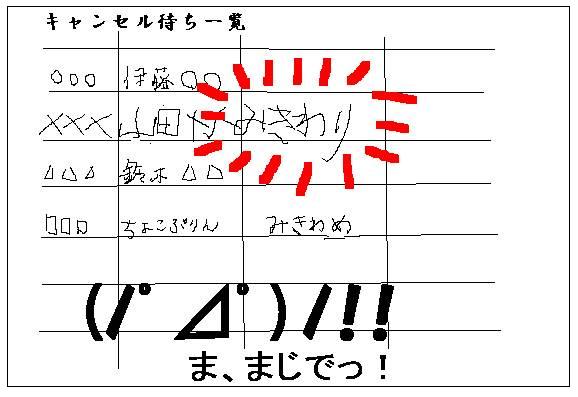 キャンセル待ち一覧
○○○ 伊藤○○
××× 山田 みきわり
△△△ 鈴木△△
□□□ ちょこぷりん みきわめ
(ﾉﾟДﾟ)ﾉ!!
ま、まじでっ！